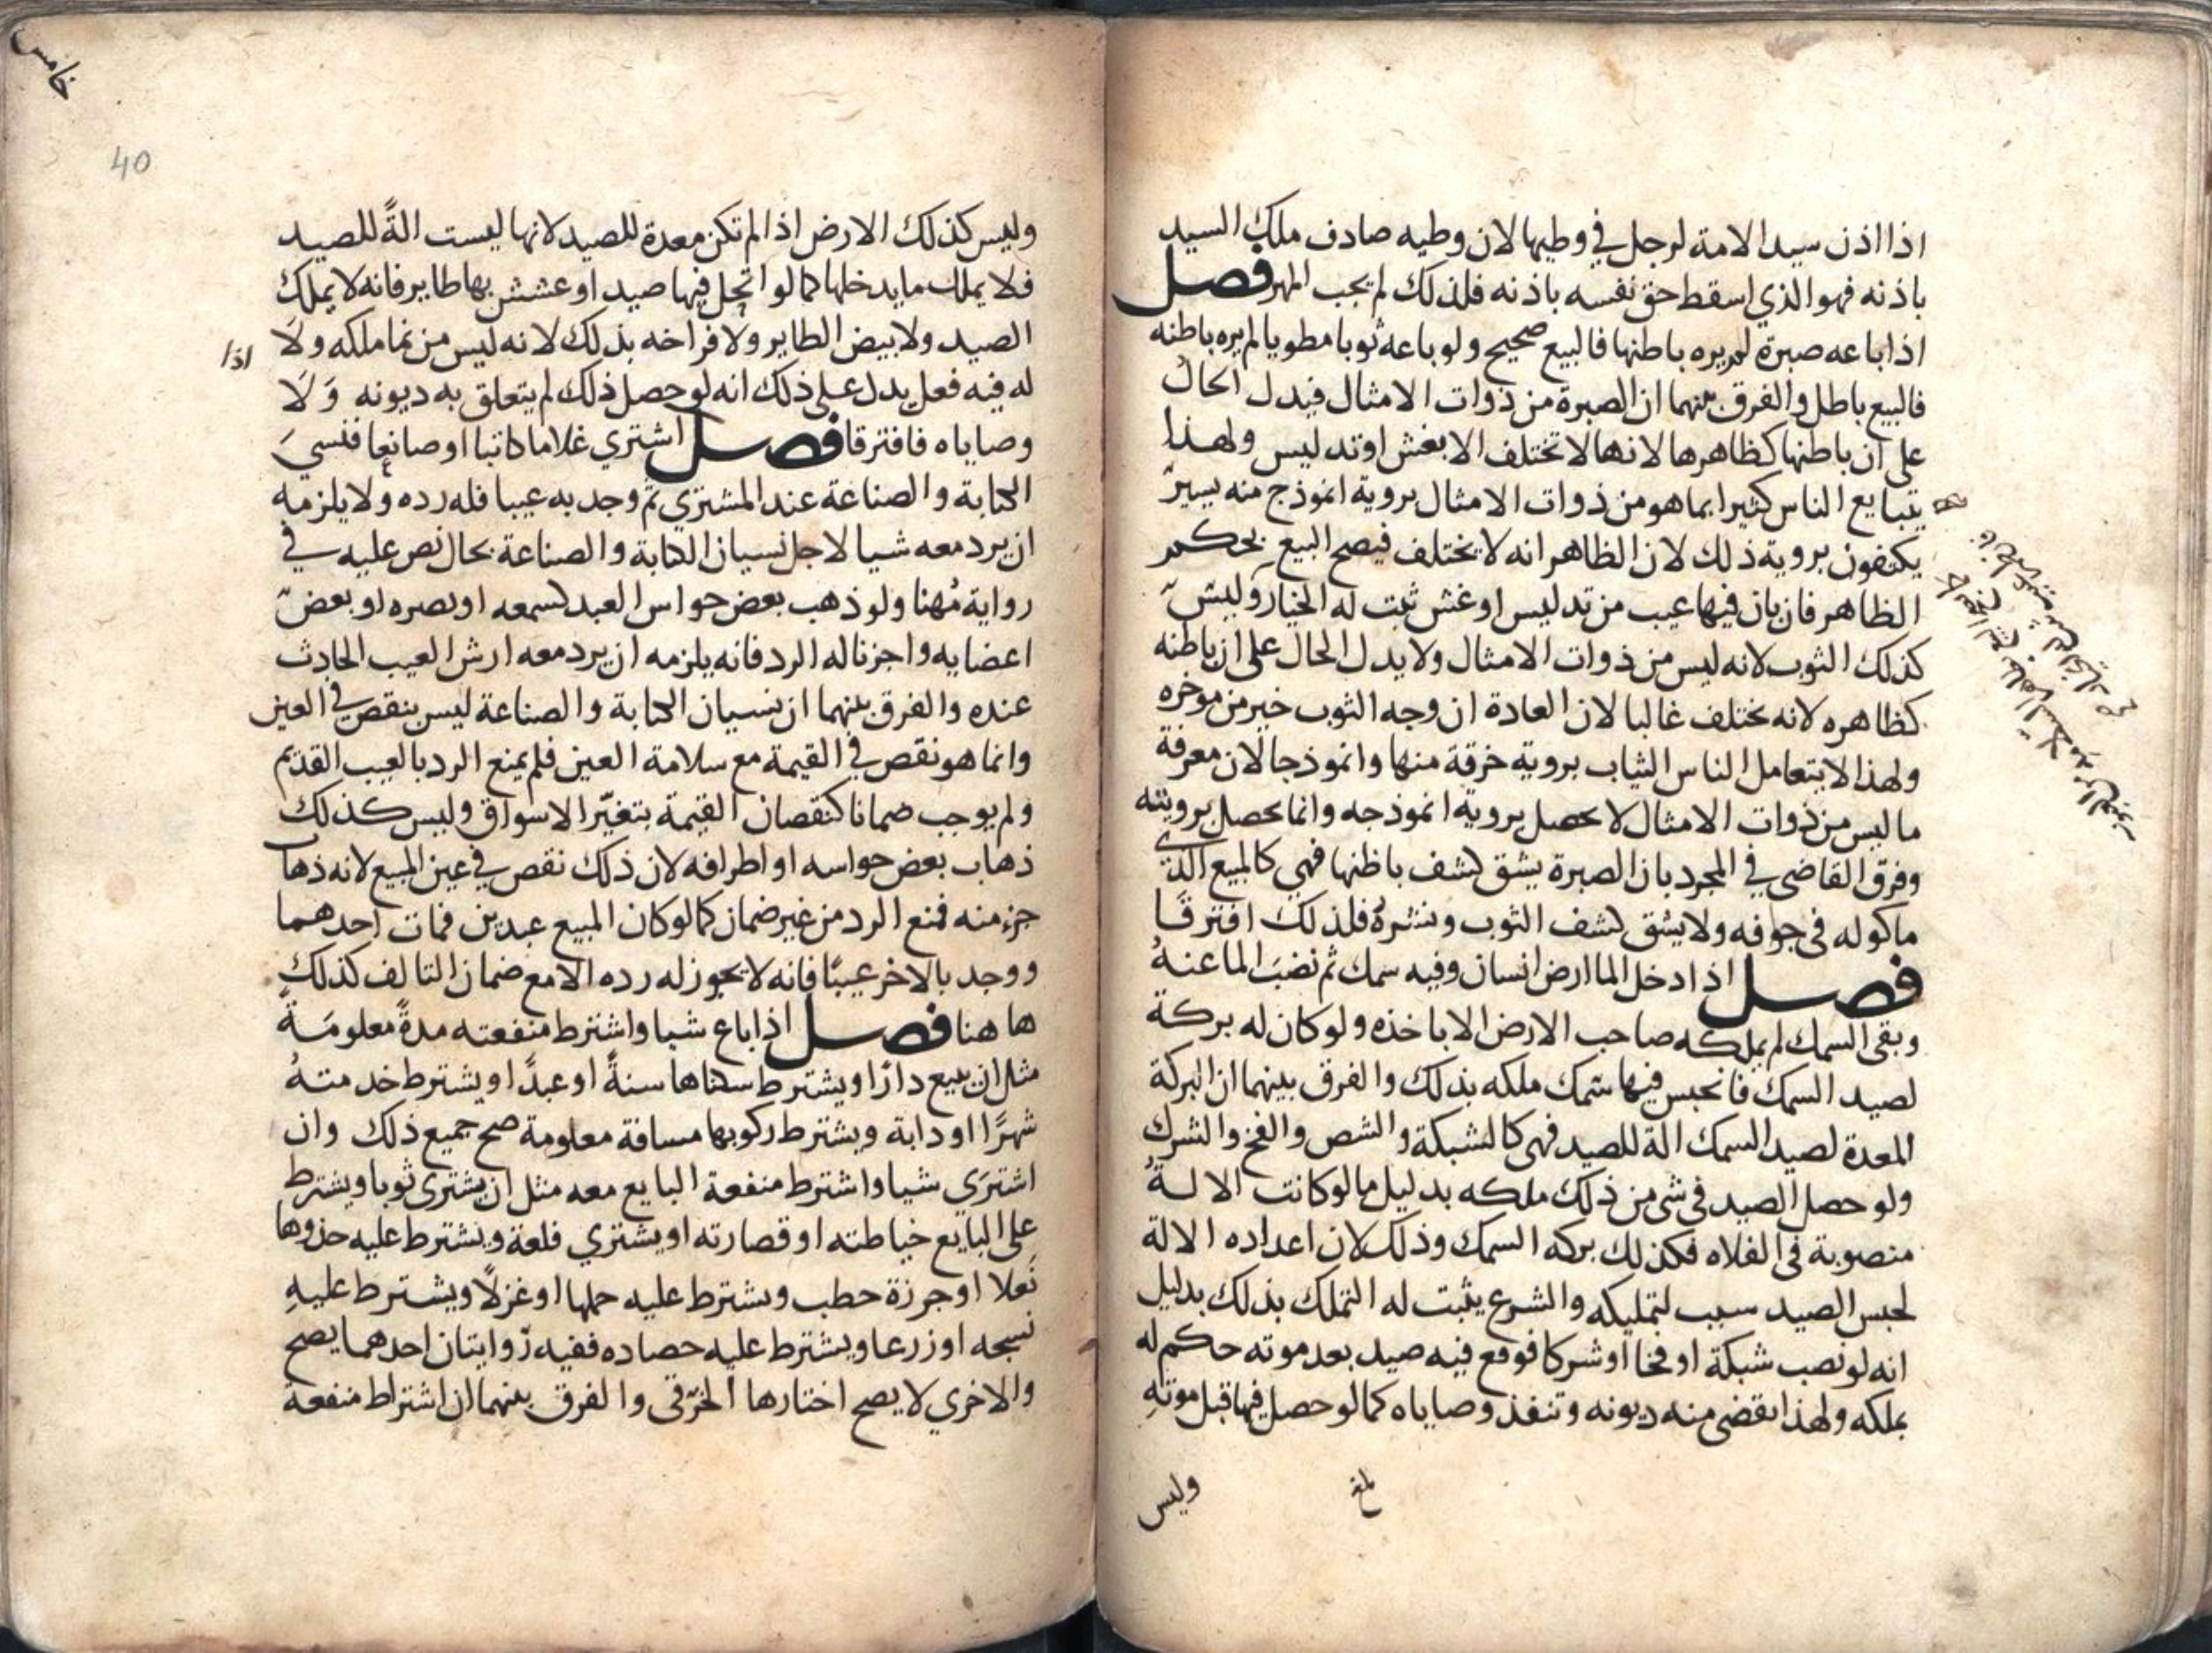 اذا اذن سيد الامة لرجل في وطيها لان وطيه صادف ملك السيد
باذنه فهو الذي اسقط حق نفسه باذنه فلذلك لم يجب المهر فصل
اذا باعه صبرة لم يره باطنها فالبيع صحيح ولو باعه ثوبا مطويا لم يره باطنه
فالبيع باطل والفرق بينهما ان الصبرة من ذوات الامثال فيدل الحال
على ان باطنها كظاهرها لانها لا تختلف الا بغش او تدليس ولهذا
يتبايع الناس كثيرا بما هو من ذوات الامثال بروية انموذج منه يسير
يكتفون بروية ذلك لان الظاهر انه لا يختلف فيصح البيع بحكم
الظاهر فان بان فيها عيب من تدليس او غش ثبت له الخيار وليس
كذلك الثوب لانه ليس من ذوات الامثال ولا يدل الحال على ان باطنه
كظاهره لانه يختلف غالبا لان العادة ان وجه الثوب خير من موخره
ولهذا لا يتعامل الناس الثياب بروية خرقة منها وانموذجا لان معرفة
ما ليس من ذوات الامثال لا يحصل بروية انموذجه وانما يحصل برويته
وفرق القاضي في المجرد بان الصبرة يشق كشف باطنها فهي كالمبيع الذي
ماكوله في جوفه ولا يشق كشف الثوب ونشره فلذلك افترقا
فصل اذا دخل الما ارض انسان وفيه سمك ثم نضب الما عنه
وبقي السمك لم يملكه صاحب الارض الا باخذه ولو كان له بركة
لصيد السمك فانحبس فيها سمك ملكه بذلك والفرق بينهما ان البركة
المعدة لصيد السمك الة للصيد فهي كالشبكة والشص والفخ والشرك
ولو حصل الصيد في شي من ذلك ملكه بدليل ما لو كانت الالة
منصوبة في الفلاه فكذلك بركه السمك وذلك لان اعداده الالة
لحبس الصيد سبب لتمليكه والشرع يثبت له التملك بذلك بدليل
انه لو نصب شبكة او فخا او شركا فوقع فيه صيد بعد موته حكم له
بملكه ولهذا يقضي منه ديونه وتنفذ وصاياه كما لو حصل فيها قبل موته
وليس
خامس
40
وليس كذلك الارض اذا لم تكن معدة للصيد لانها ليست الةً للصيد
فلا يملك ما يدخلها كما لو اتحل فيها صيد او عشش بها طاير فانه لا يملك
الصيد ولا بيض الطاير ولا فراخه بذلك لانه ليس من نما ملكه ولا
اذا
له فيه فعل يدل على ذلك انه لو حصل ذلك لم يتعلق به ديونه ولا
وصاياه فافترقا فصل اشتري غلاما كاتبا او صانعا فنسي
الكتابة والصناعة عند المشتري ثم وجد به عيبا فله رده ولا يلزمه
ان يرد معه شيا لاجل نسيان الكتابة والصناعة بحال نص عليه في
رواية مُهنا ولو ذهب بعض حواس العبد كسمعه او بصره او بعض
اعضايه واجزنا له الرد فانه يلزمه ان يرد معه ارش العيب الحادث
عنده والفرق بينهما ان نسيان الكتابة والصناعة ليس بنقص في العين
وانما هو نقص في القيمة مع سلامة العين فلم يمنع الرد بالعيب القديم
ولم يوجب ضمانا كنقصان القيمة بتغيّر الاسواق وليس كذلك
ذهاب بعض حواسه او اطرافه لان ذلك نقص في عين المبيع لانه ذهاب
جزء منه فمنع الرد من غير ضمان كما لو كان المبيع عبدين فمات احدهما
ووجد بالاخر عيبًا فانه لا يجوز له رده الا مع ضمان التالف كذلك
هاهنا فصل اذا باع شيا واشترط منفعته مدةً معلومةً
مثل ان يبيع دارًا ويشترط سكناها سنةً او عبدًا ويشترط خدمتهُ
شهرًا او دابة ويشترط ركوبها مسافة معلومة صح جميع ذلك وان
اشترَى شيا واشترط منفعة البايع معه مثل ان يشتري ثوبا ويشترط
على البايع خياطته او قصارته او يشتري فلعة ويشترط عليه حذوها
نَعلا او جرزة حطب ويشترط عليه حملها او غزلًا ويشترط عليهِ
نسجه او زرعا ويشترط عليه حصاده ففيه روايتان احدهما يصح
والاخري لا يصح اختارها الخرقي والفرق بينهما ان اشتراط منفعة